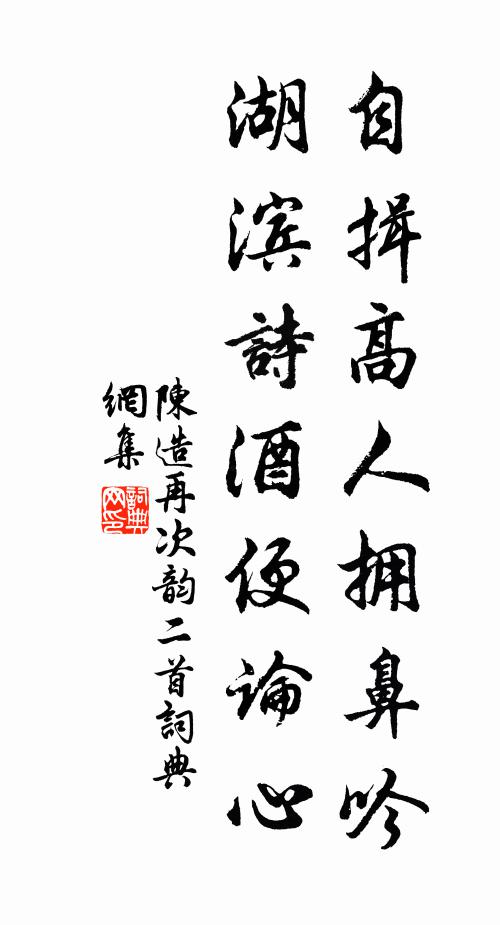 自揖高人拥鼻吟
湖滨詩酒便論心
陳造再次韵二首詞典
網集
詞典
网印